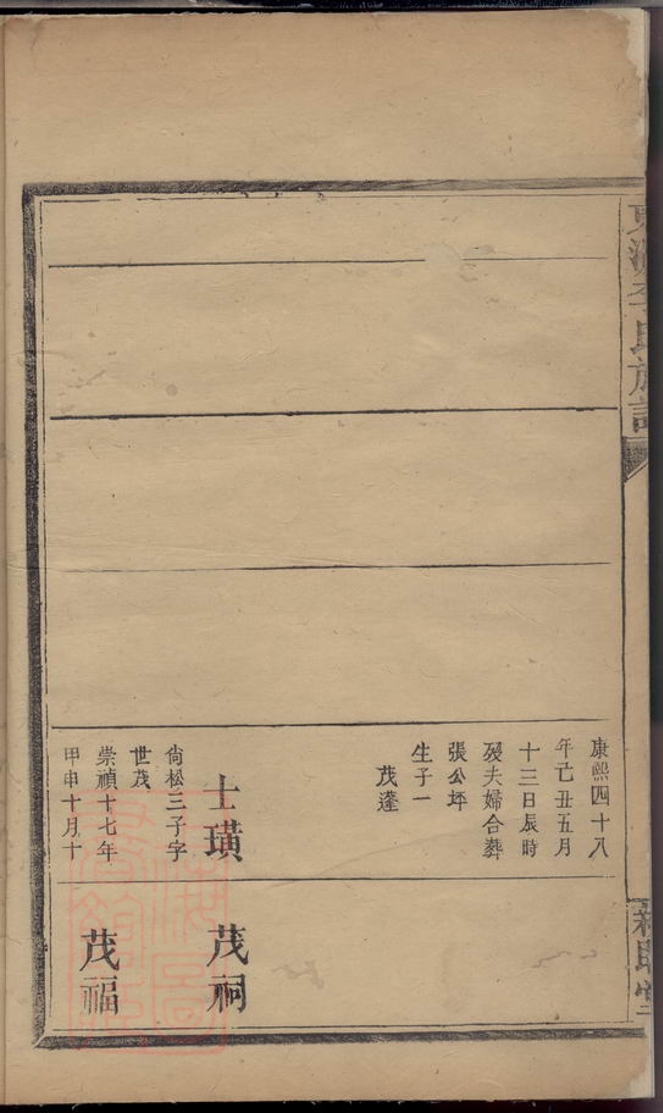 康熙四十八
年亡丑五月
十三日辰時
殁夫婦合葬
張公坪
生子一
茂蓬
士璜
尙松三子字
世茂
崇禎十七年
甲申十月十
茂祠
茂福
李氏族譜